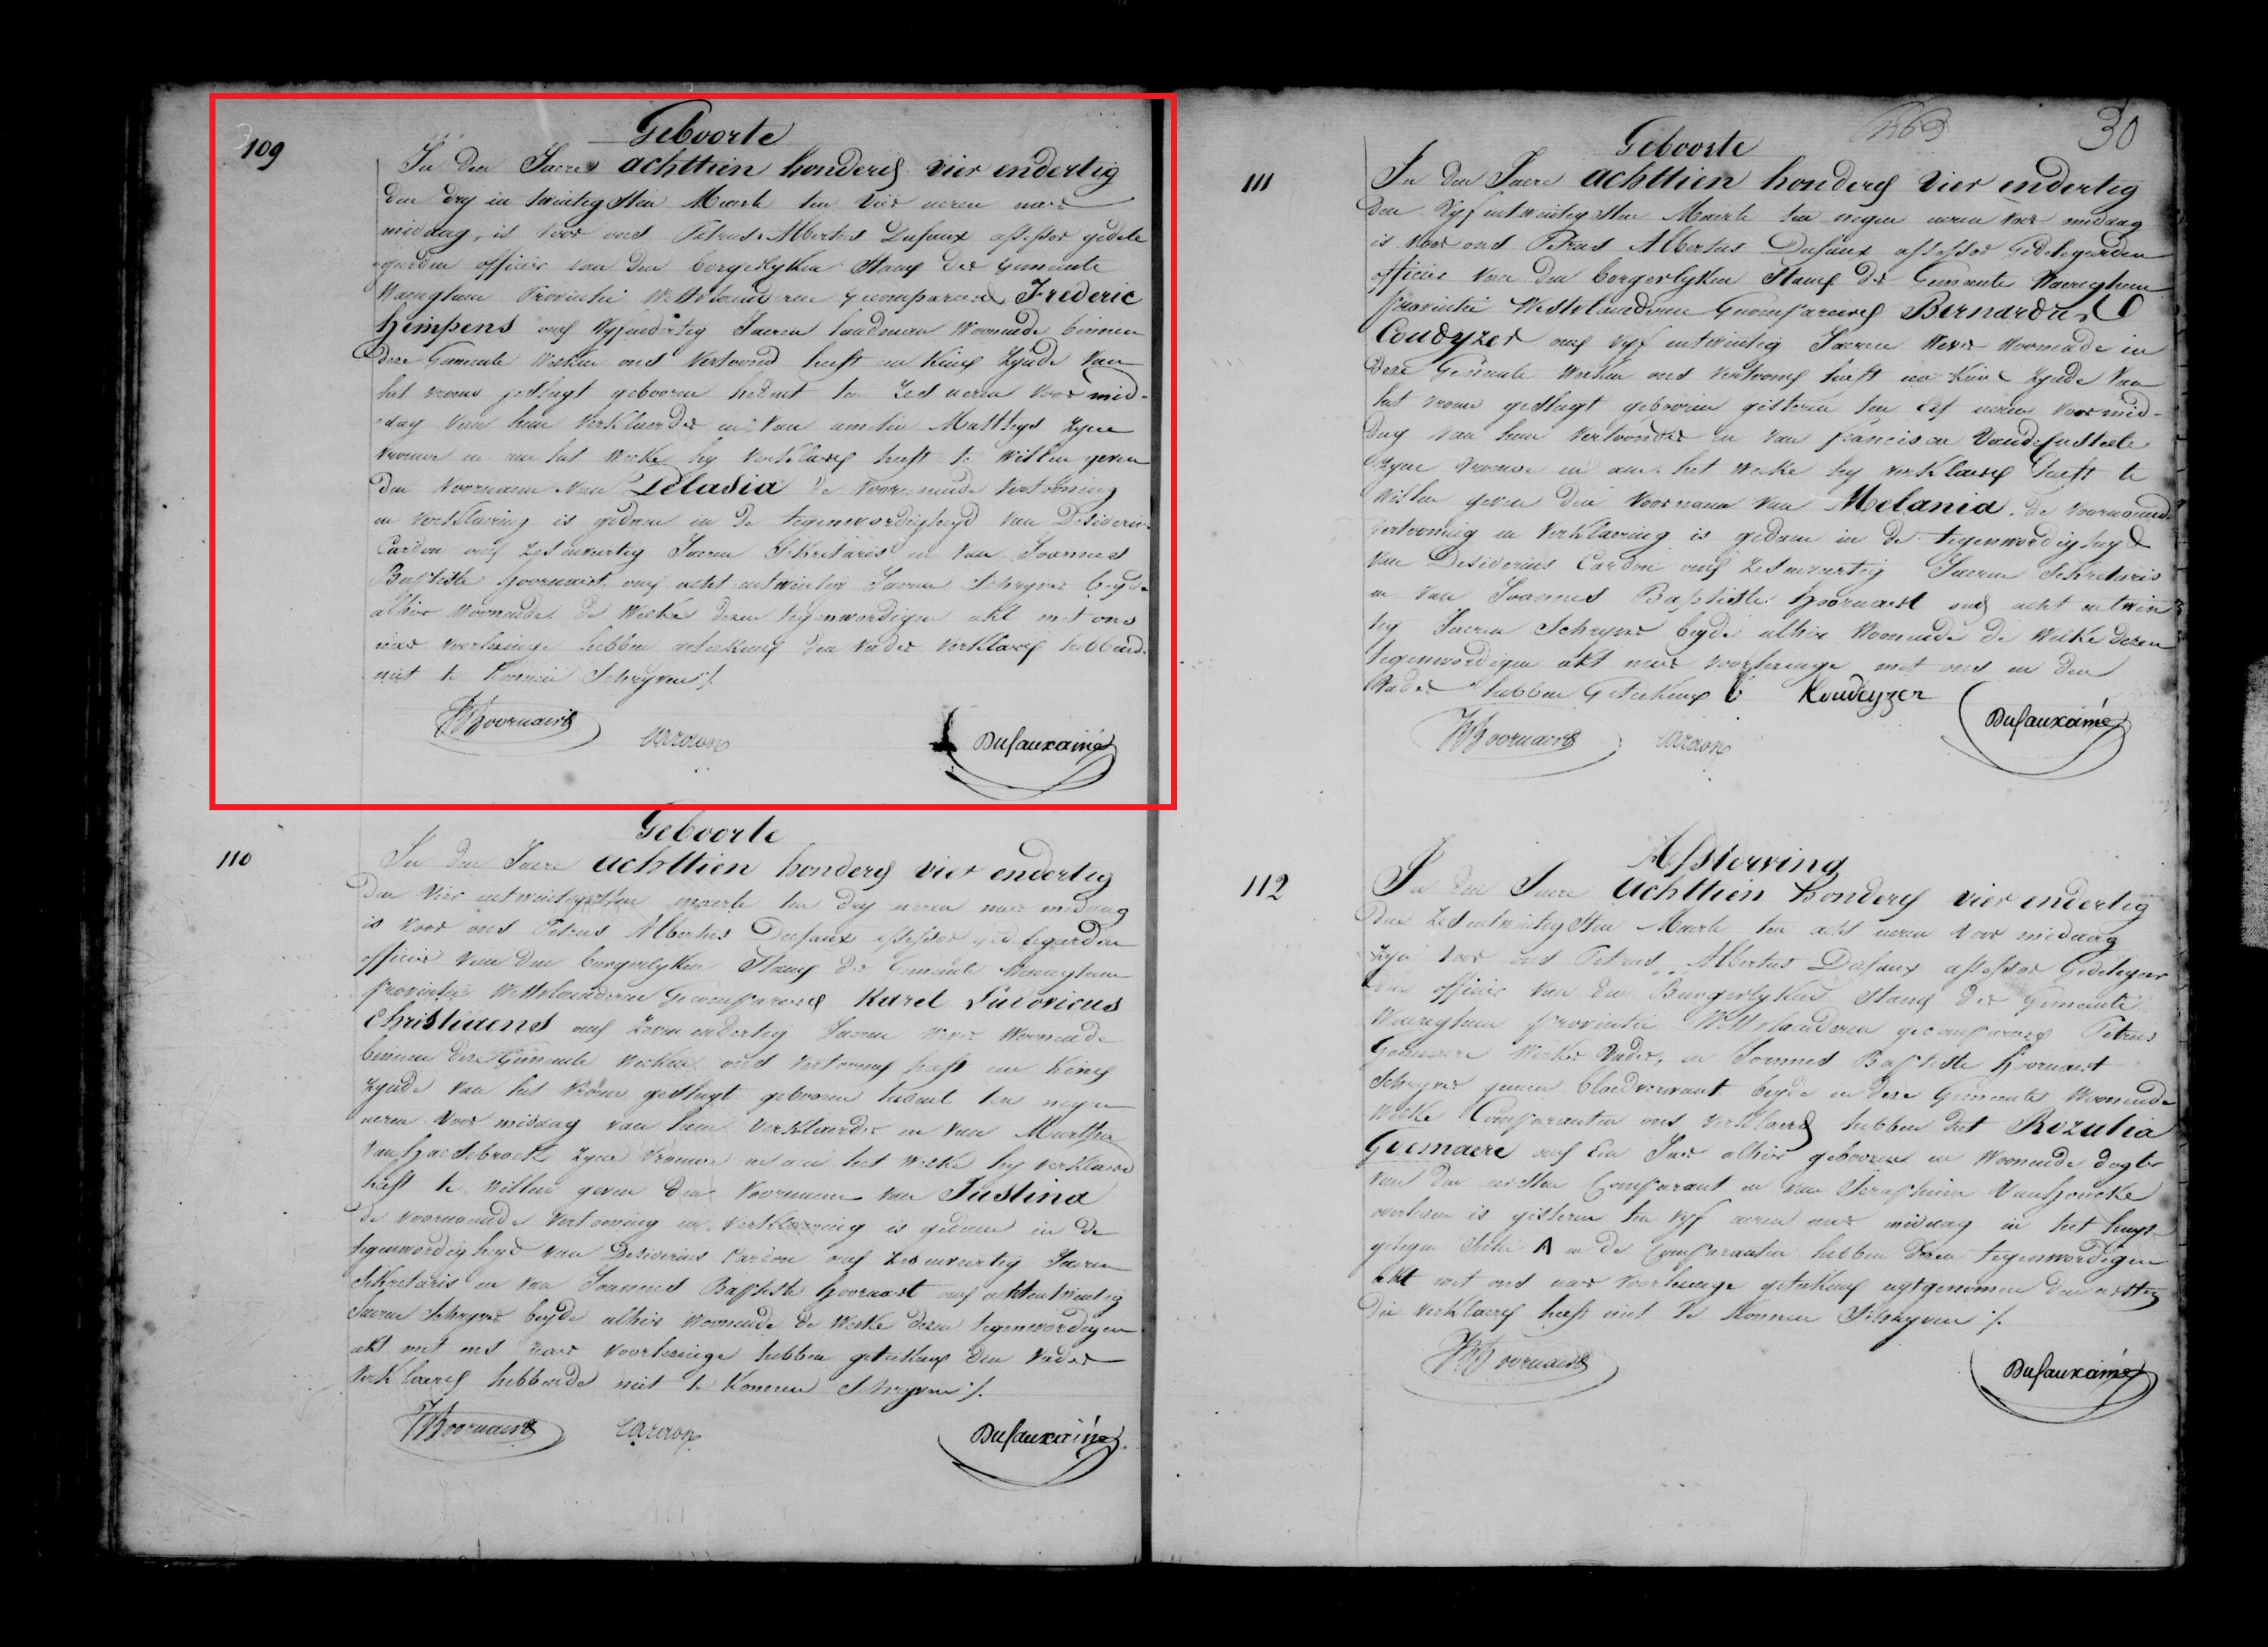 109
Geboorte
In den Jaere achttien honderd vier endertig
den dry en twintigsten Maerte ten vier ueren naer
middag, is voor ons Petrus Albertus Dufaux assessor gedele
geerden officier van den borgerlyken Stand der Gemeente
Waereghem Provintie Westvlaenderen gecompareerd Frederic
himpens oud vyfendertig Jaeren landman Woonende binnen
deze Gemeente Welken ons Vertoond heeft een Kind Zynde Van
het vrouw geslagt gebooren heden ten Zes ueren voor mid-
dag van hem Verklaerder en van amelia Matthys Zyne
vrouwe en aen het Welke hy Verklaerd heeft te Willen geven
den Voornaem van Pelasia de voornoemde Vertooning
en verklaering is gedaen in de tegenwoordigheyd van Desiderius
Cardon oud Zesenveertig Jaeren Sekretaris en van Joannes
Baptiste hoornaert oud acht entwintig Jaeren Schryver beyde
alhier woonende de Welke dezen tegenwordigen akt met ons
naer voorlezinge hebben geteekend den vader Verklaerd hebbende
niet te konnen Schryven /.
JB hoornaert Cardon Dufaux ainé
110
Geboorte
In den Jaere achttien honderd vier endertig
den Vier entwintigsten maerte ten dry ueren naer middag
is voor ons Petrus Albertus Dufaux assessor gedelegeerden
officier van den burgerlyken Stand der Gemeente Waereghem
provintie Westvlaenderen Gecompareerd Karel Ludovicus
Christiaens oud Zeven endertig Jaeren Wever Woonende
binnen deze Gemeente Welken ons Vertoond heeft een Kind
Zynde van het Vrouw geslagt gebooren heden ten negen
ueren voor middag van hem Verklaerder en van Martha
Vanhaesebroek Zyne Vrouwe en aen het Welke hy verklaerd
heeft te Willen geven den Voornaem van Justina
de voornoemde Vertooning en Verklaering is gedaen in de
tegenwordigheyd van Desiderius Cardon oud Zesenveertig Jaeren
Sekretaris en van Joannes Baptiste hoornaert oud achtentwintig
Jaeren Schryver beyde alhier Woonende de Welke dezen tegenwordigen
akt met ons naer Voorlezinge hebben geteekend den Vader
Verklaerd hebbende niet te Konnen Schryven /.
JB hoornaert Cardon Dufaux ainé
30
111
Geboorte
In den Jaere achttien honderd Vier endertig
den Vyf entwintigsten Maerte ten negen ueren voor middag
is voor ons Petrus Albertus Dufaux assessor Gedelegeerden
officier van den borgerlyken Stand der Gemeente Waereghem
provintie Westvlaenderen Gecompareerd Bernardus
Coudyzer oud vyf entwintig Jaeren Wever Woonende in
deze Gemeente Welken ons Vertoond heeft een Kind Zynde Van
het vrouw geslagt gebooren gisteren ten elf ueren voormid-
dag van hem Vertoonder en van francisca Vandefonteele
Zyne vrouwe en aen het Welke hy verklaerd heeft te
Willen geven den Voornaem van Melania, de voornoemde
Vertooning en Verklaering is gedaen in de tegenwordigheyd
van Desiderius Cardon oud Zesenveertig Jaeren Sekretaris
en van Joannes Baptiste hoornaert oud acht entwin
tig Jaeren Schryver beyde alhier Woonende de Welke dezen
tegenwordigen akt naer voorlezinge met ons en den
Vader hebben Geteekend B Koudeyzer
JB hoornaert Cardon Dufaux ainé
112
Afsterving
In den Jaere Achttien honderd vier endertig
den Zesentwintigsten Maerte ten acht ueren voor middag
Zyn voor ons Petrus Albertus Dufaux assessor Gedelegeer
den officier van den Burgerlyken Stand der Gemeente
Waereghem provintie Westvlaenderen gecompareerd Petrus
Goemaere Werker Vader, en Joannes Baptiste hoornaert
Schryver geenen bloedverwant beyde in deze Gemeente Woonende
Welke Comparanten ons verklaerd hebben dat Rozalia
Goemaere oud Een Jaer alhier gebooren en Woonende dogter
van den eersten Comparant en van Seraphina Vanhoucke
overleden is gisteren ten vyf ueren naer middag in het huys
gelegen Sectie A en de Comparanten hebben dezen tegenwordigen
akt met ons naer voorlezinge geteekend uytgenomen den eersten
die verklaerd heeft niet te Konnen Schryven /.
JB hoornaert Dufaux ainé